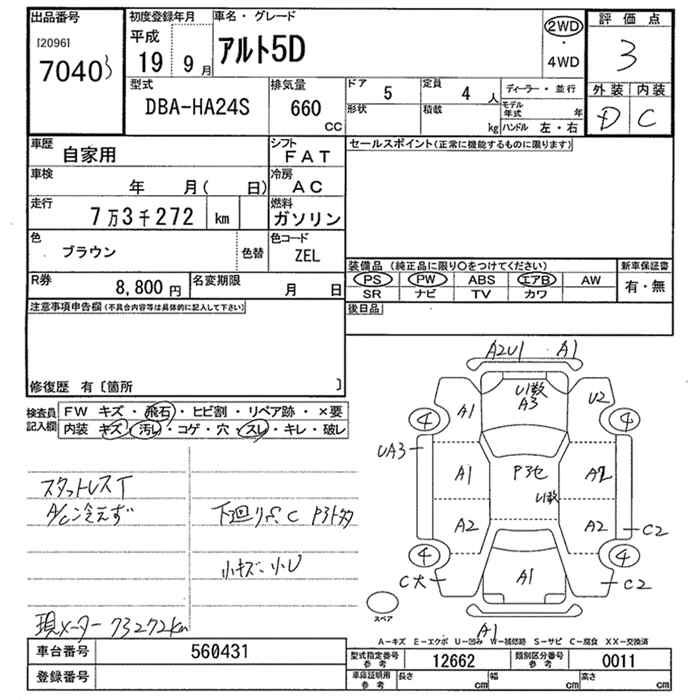 出品番号 初度登録年月 車名・グレード 評価点
[2096] 平成 アルト5D 2WD 3
7040 3 19 9月 ・ 4WD
外装 内装
型式 排気量 ドア 5 定員 4人 ディーラー・並行 D C
DBA-HA24S 660 CC 形状 積載 kg モデル年式 年
ハンドル 左・右
車歴 自家用 シフト FAT セールスポイント(正常に機能するものに限ります)
車検 年 月( 日) 冷房 AC
走行 7万3千272 km 燃料 ガソリン
色 ブラウン 色替 色コード ZEL
装備品 (純正品に限り○をつけてください) 新車保証書
R券 8,800円 名変期限 月 日 PS PW ABS エアB AW 有・無
SR ナビ TV カワ
注意事項申告欄(不具合内容等は具体的に記入して下さい) 後日品
修復歴 有〔箇所 〕
検査員 FW キズ・飛石・ヒビ割・リペア跡・×要
記入欄 内装 キズ・汚レ・コゲ・穴・スレ・キレ・破レ
A2U1 A1
U1数
A3
A1 U2
4 4
UA3
A1 P3セ A2
U1数
A2 A2 C2
4 4
C大 A1 C2
スペア
A1
スタットレスT
A/C冷えず 下廻りS.C
小キズ・小U
現メーター 73272km
A-キズ E-エクボ U-凹み W-補修跡 S-サビ C-腐食 XX-交換済
車台番号 560431 型式指定番号 参考 12662 類別区分番号 参考 0011
登録番号 車庫証明用 参考 長さ cm 幅 cm 高さ cm